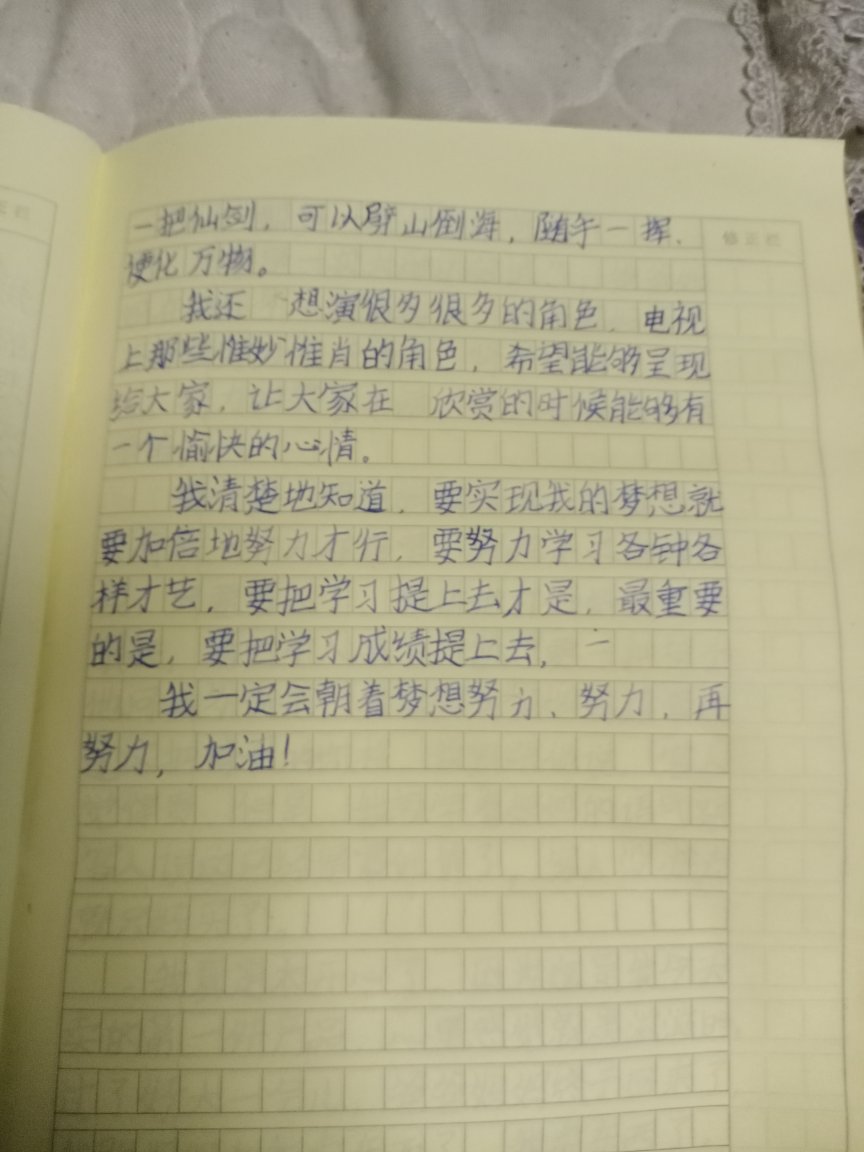 一把仙剑，可以劈山倒海，随手一挥，
便化万物。
我还 想演很多很多的角色，电视
上那些惟妙惟肖的角色，希望能够呈现
给大家，让大家在 欣赏的时候能够有
一个愉快的心情。
我清楚地知道，要实现我的梦想就
要加倍地努力才行，要努力学习各钟各
样才艺，要把学习提上去才是，最重要
的是，要把学习成绩提上去，一
我一定会朝着梦想努力、努力，再
努力，加油！
修正栏